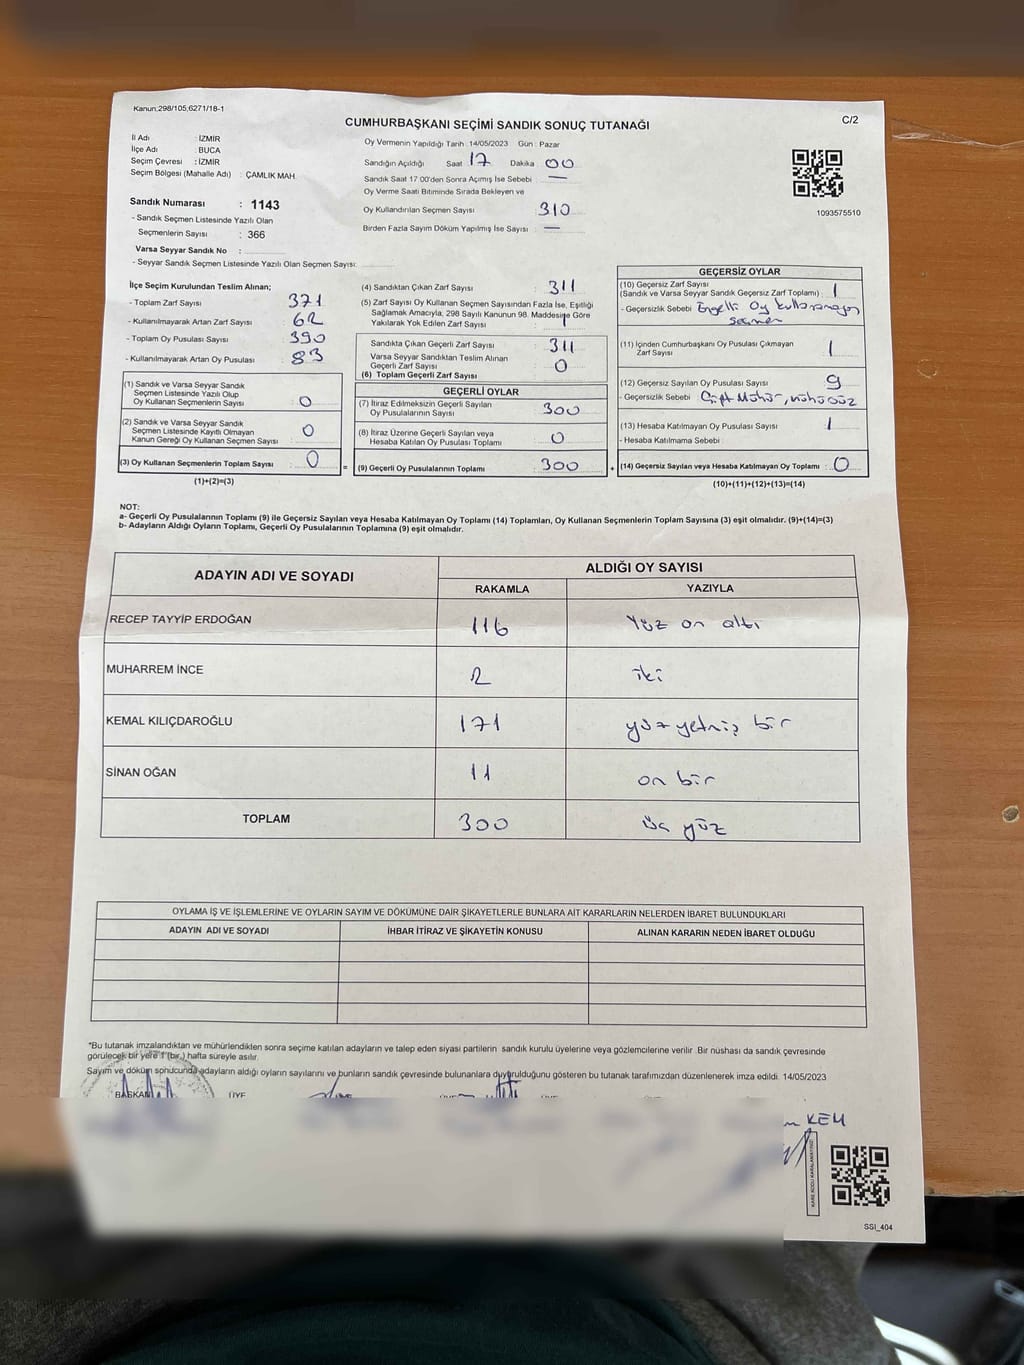 Kanun;298/105,6271/18-1
C/2
CUMHURBAŞKANI SEÇİMİ SANDIK SONUÇ TUTANAĞI
İl Adı : İZMİR
İlçe Adı : BUCA
Seçim Çevresi : İZMİR
Seçim Bölgesi (Mahalle Adı) : ÇAMLIK MAH.
Oy Vermenin Yapıldığı Tarih : 14/05/2023 Gün : Pazar
Sandığın Açıldığı Saat 17 Dakika 00
Sandık Saat 17:00'den Sonra Açımış İse Sebebi : —
Oy Verme Saati Bitiminde Sırada Bekleyen ve
Oy Kullandırılan Seçmen Sayısı 310
Birden Fazla Sayım Döküm Yapılmış İse Sayısı : —
1093575510
Sandık Numarası : 1143
- Sandık Seçmen Listesinde Yazılı Olan
Seçmenlerin Sayısı : 366
Varsa Seyyar Sandık No :
- Seyyar Sandık Seçmen Listesinde Yazılı Olan Seçmen Sayısı:
İlçe Seçim Kurulundan Teslim Alınan;
- Toplam Zarf Sayısı 371
- Kullanılmayarak Artan Zarf Sayısı : 62
- Toplam Oy Pusulası Sayısı : 390
- Kullanılmayarak Artan Oy Pusulası : 83
(1) Sandık ve Varsa Seyyar Sandık
Seçmen Listesinde Yazılı Olup
Oy Kullanan Seçmenlerin Sayısı : 0
(2) Sandık ve Varsa Seyyar Sandık
Seçmen Listesinde Kayıtlı Olmayan
Kanun Gereği Oy Kullanan Seçmen Sayısı : 0
(3) Oy Kullanan Seçmenlerin Toplam Sayısı : 0
(1)+(2)=(3)
=
(4) Sandıktan Çıkan Zarf Sayısı : 311
(5) Zarf Sayısı Oy Kullanan Seçmen Sayısından Fazla İse, Eşitliği
Sağlamak Amacıyla, 298 Sayılı Kanunun 98. Maddesine Göre
Yakılarak Yok Edilen Zarf Sayısı : 1
Sandıkta Çıkan Geçerli Zarf Sayısı : 311
Varsa Seyyar Sandıktan Teslim Alınan
Geçerli Zarf Sayısı : 0
(6) Toplam Geçerli Zarf Sayısı
GEÇERLİ OYLAR
(7) İtiraz Edilmeksizin Geçerli Sayılan
Oy Pusulalarının Sayısı : 300
(8) İtiraz Üzerine Geçerli Sayılan veya
Hesaba Katılan Oy Pusulası Toplamı : 0
(9) Geçerli Oy Pusulalarının Toplamı : 300
+
GEÇERSİZ OYLAR
(10) Geçersiz Zarf Sayısı
(Sandık ve Varsa Seyyar Sandık Geçersiz Zarf Toplamı) : 1
- Geçersizlik Sebebi : Engelli Oy kullanamayan
seçmen
(11) İçinden Cumhurbaşkanı Oy Pusulası Çıkmayan
Zarf Sayısı : 1
(12) Geçersiz Sayılan Oy Pusulası Sayısı : 9
- Geçersizlik Sebebi : Çift Mühür, mühürsüz
(13) Hesaba Katılmayan Oy Pusulası Sayısı : 1
- Hesaba Katılmama Sebebi :
(14) Geçersiz Sayılan veya Hesaba Katılmayan Oy Toplamı : 0
(10)+(11)+(12)+(13)=(14)
NOT:
a- Geçerli Oy Pusulalarının Toplamı (9) ile Geçersiz Sayılan veya Hesaba Katılmayan Oy Toplamı (14) Toplamları, Oy Kullanan Seçmenlerin Toplam Sayısına (3) eşit olmalıdır. (9)+(14)=(3)
b- Adayların Aldığı Oyların Toplamı, Geçerli Oy Pusulalarının Toplamına (9) eşit olmalıdır.
ADAYIN ADI VE SOYADI ALDIĞI OY SAYISI
RAKAMLA YAZIYLA
RECEP TAYYİP ERDOĞAN 116 Yüz on altı
MUHARREM İNCE 2 iki
KEMAL KILIÇDAROĞLU 171 yüz yetmiş bir
SİNAN OĞAN 11 on bir
TOPLAM 300 üç yüz
OYLAMA İŞ VE İŞLEMLERİNE VE OYLARIN SAYIM VE DÖKÜMÜNE DAİR ŞİKAYETLERLE BUNLARA AİT KARARLARIN NELERDEN İBARET BULUNDUKLARI
ADAYIN ADI VE SOYADI İHBAR İTİRAZ VE ŞİKAYETİN KONUSU ALINAN KARARIN NEDEN İBARET OLDUĞU
*Bu tutanak imzalandıktan ve mühürlendikten sonra seçime katılan adayların ve talep eden siyasi partilerin sandık kurulu üyelerine veya gözlemcilerine verilir. Bir nüshası da sandık çevresinde
görülecek bir yere 1 (bir) hafta süreyle asılır.
Sayım ve döküm sonucunda adayların aldığı oyların sayılarını ve bunların sandık çevresinde bulunanlara duyurulduğunu gösteren bu tutanak tarafımızdan düzenlenerek imza edildi. 14/05/2023
BAŞKAN ÜYE
KEM
SSI_404